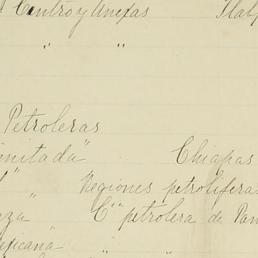 Centro y Anexas Tlalp
" "
Petroleras
imitada" Chiapas
l" " Regiones petrolifera
eza C"" petrolera de Pan
exicana " "